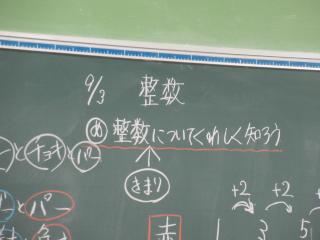 9/3 整数
め 整数についてくわしく知ろう
と チョキ と パー
きまり
+2 +2
と パー
赤 1 3 5